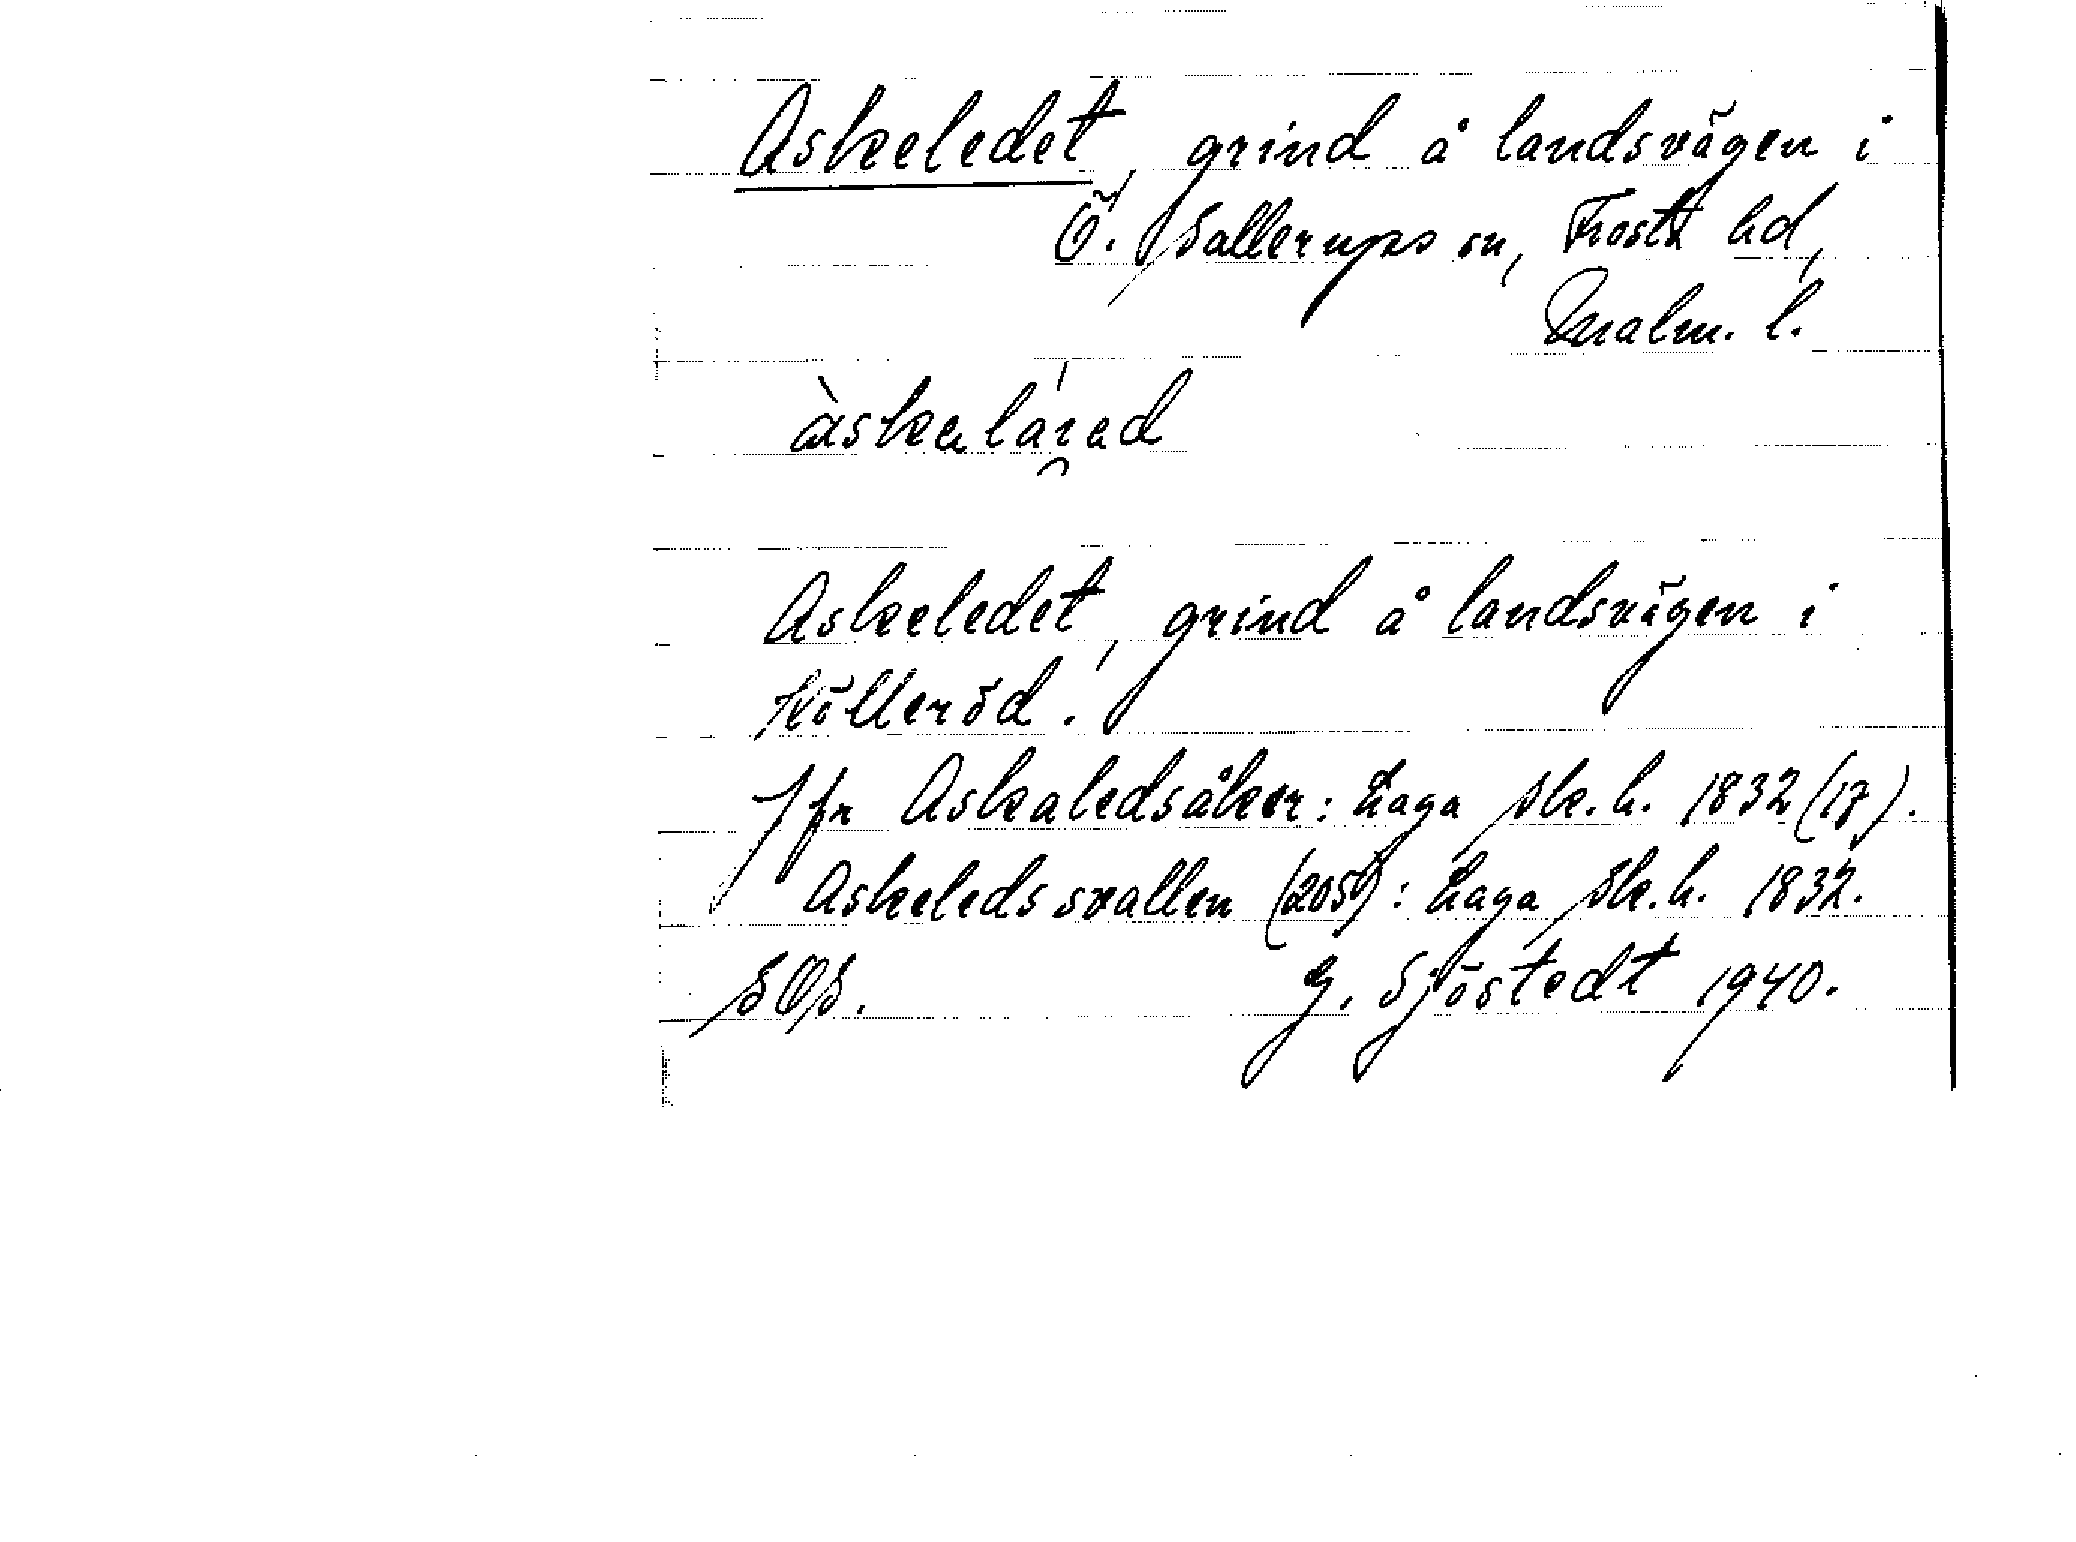 Askeledet, grind å landsvägen i
Ö. Sallerups sn, Frosta hd,
Malm. l.
àskəláı̯əd
Askeledet, grind å landsvägen i
Kölleröd.
Jfr Askaledsåker: Laga sk. h. 1832 (17).
Askeledssvallen (205b): Laga sk. h. 1832.
SOS. G. Sjöstedt 1940.